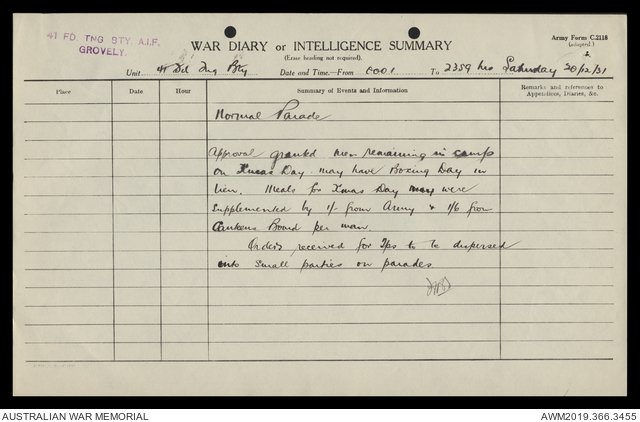 41 FD. TNG BTY. A.I.F.
GROVELY.
Army Form C.2118
(adapted.)
WAR DIARY or INTELLIGENCE SUMMARY
(Erase heading not required).
Unit 41 Fd Tng Bty Date and Time—From 0001 To 2359 hrs Saturday 20/12/41
Place Date Hour Summary of Events and Information Remarks and references to Appendices, Diaries, &c.
Normal Parade
Approval granted men remaining in camp
on Xmas Day may have Boxing Day in
lieu. Meals for Xmas Day were
supplemented by 1/- from Army & 1/6 from
Canteens Board per man.
Orders received for Tps to be dispersed
into small parties on parades
AUSTRALIAN WAR MEMORIAL
AWM2019.366.3455